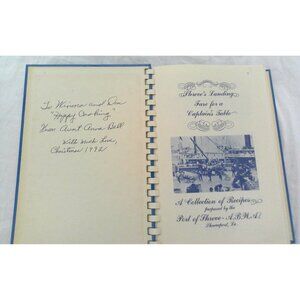 To Winona and Don
"Happy Cooking"
from Aunt Anna Bell
With Much Love,
Christmas 1992
Shreve's Landing
Fare for a
Captain's Table
A Collection of Recipes
prepared by the
Port of Shreve - A.B.W.A.
Shreveport, La.